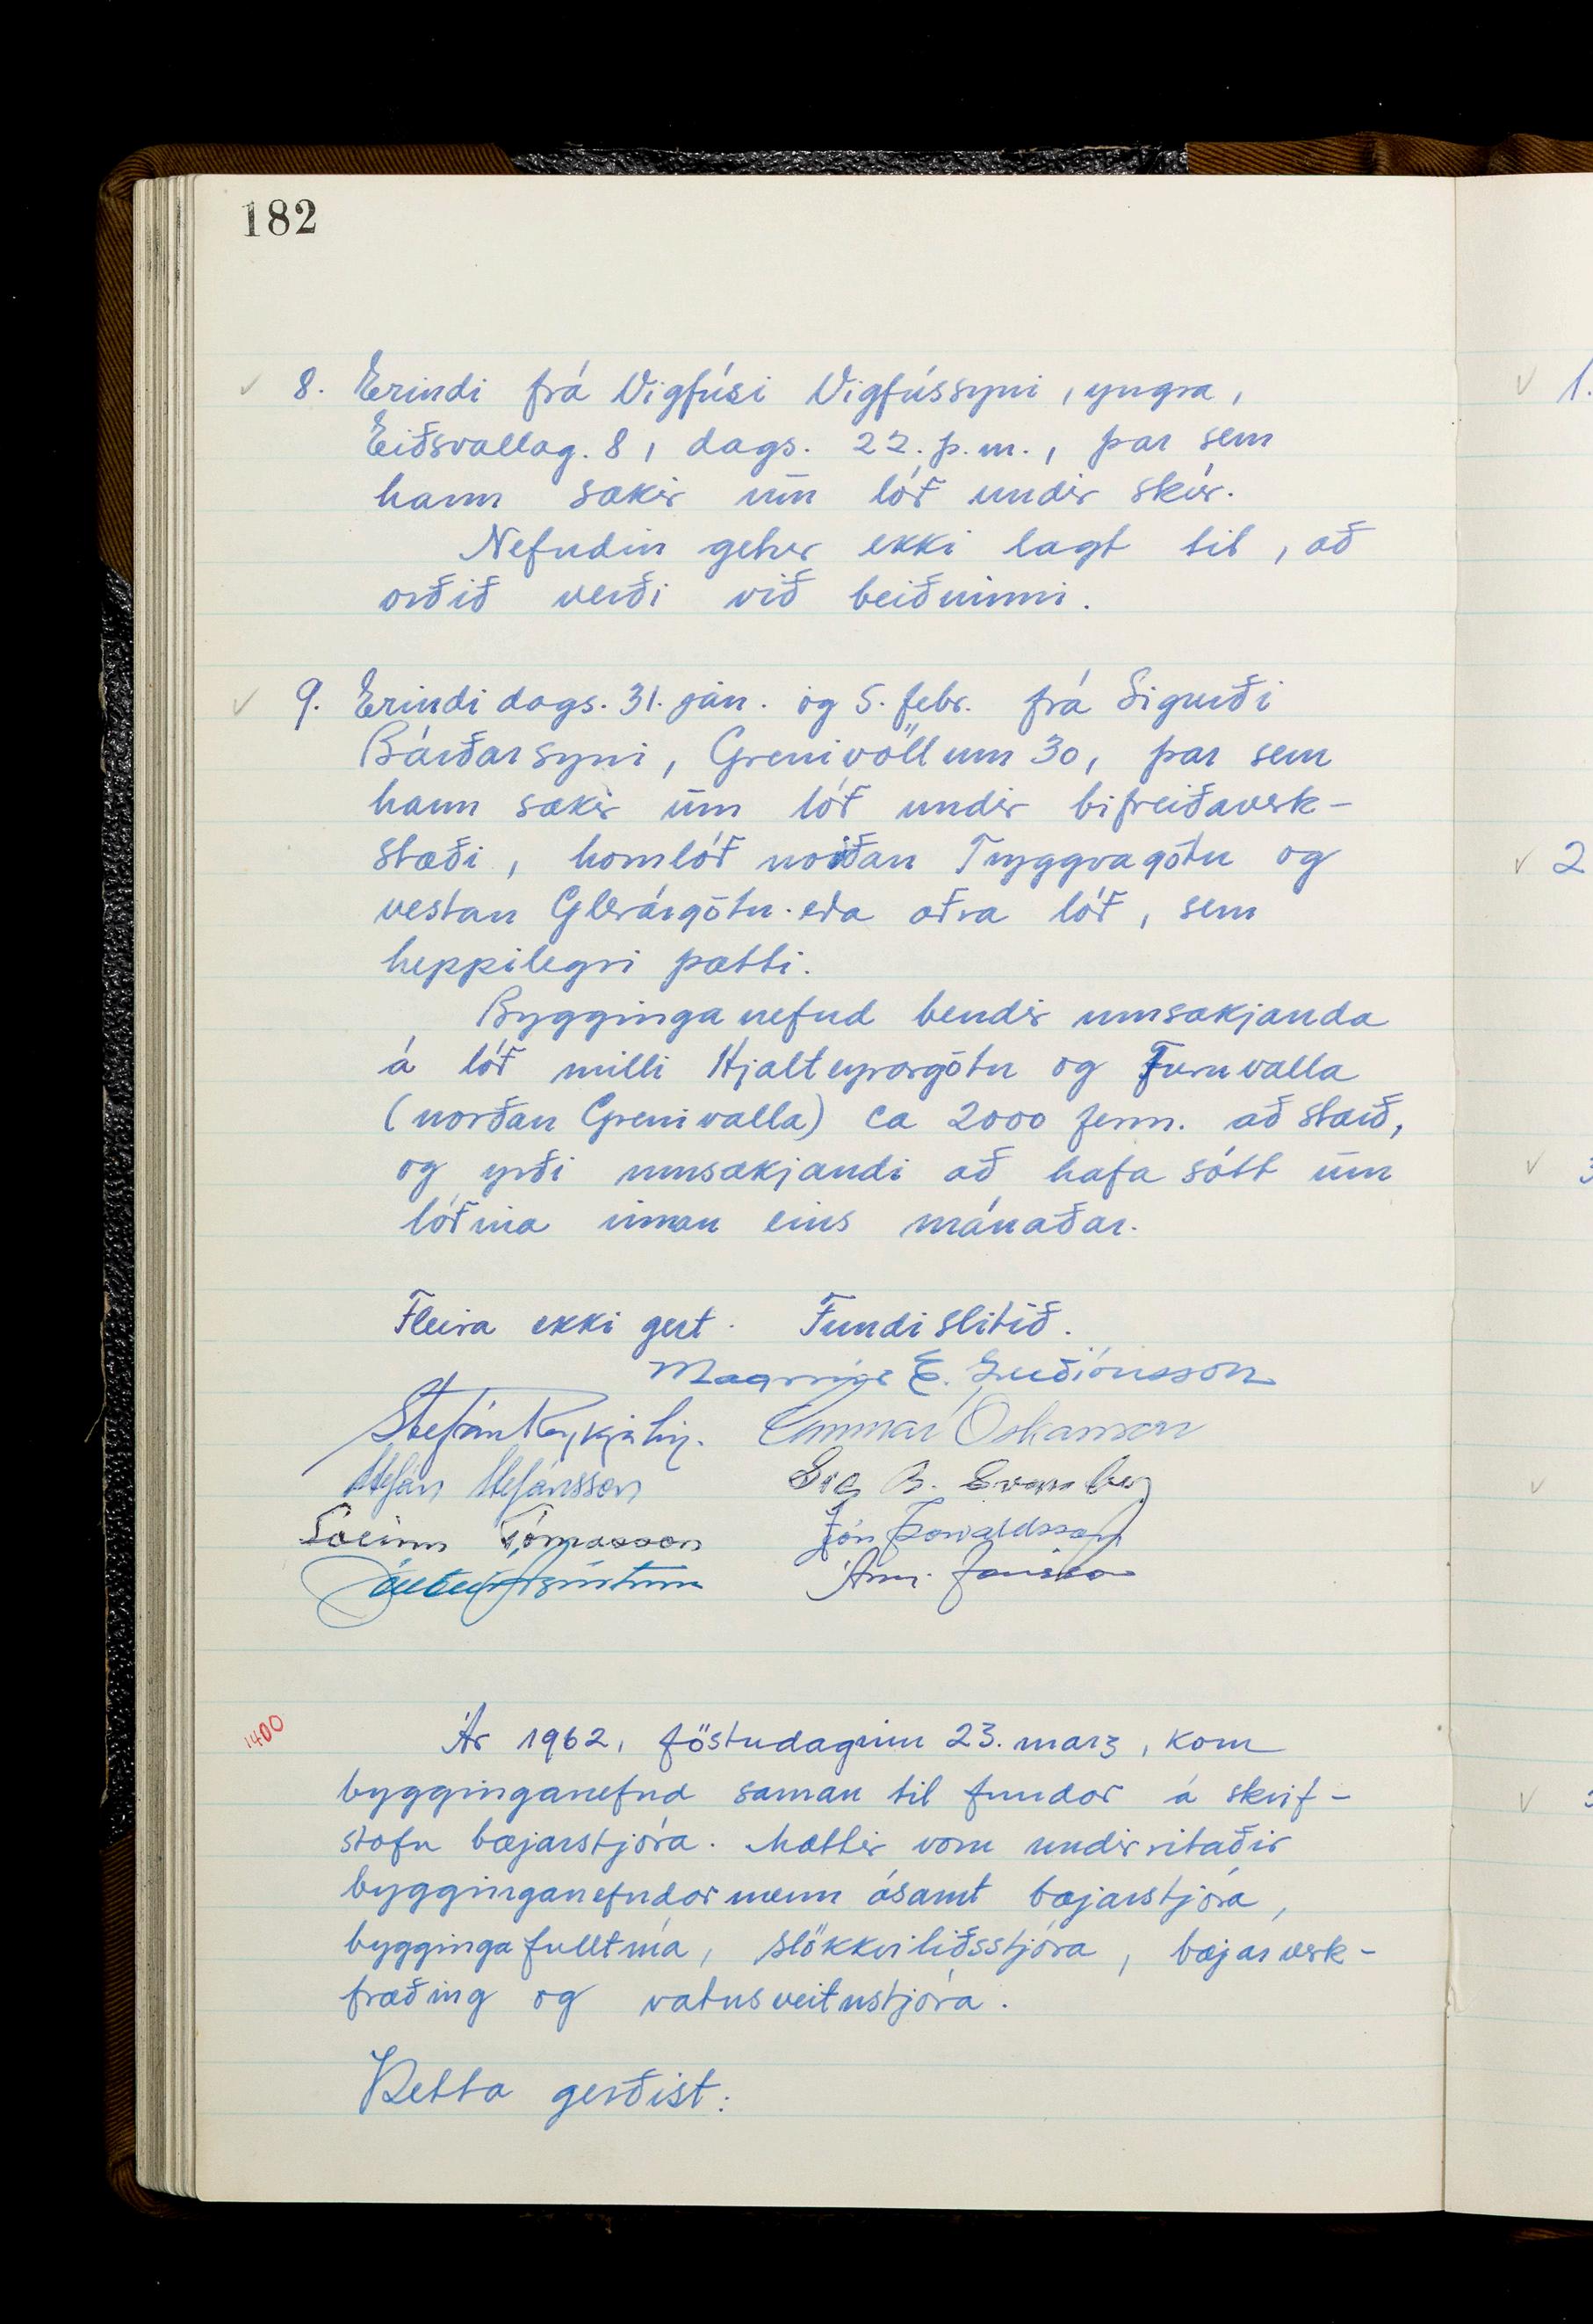 182
8. Erindi frá Vigfúsi Vigfússyni, yngra,
Eiðsvallag. 8, dags. 22. þ.m., þar sem
hann sækir um lóð undir skúr.
Nefndin getur ekki lagt til, að
orðið verði við beiðninni.
9. Erindi dags. 31. jan. og 5. febr. frá Sigurði
Bárðarsyni, Grenivöllum 30, þar sem
hann sækir um lóð undir bifreiðaverk-
stæði, hornlóð norðan Tryggvagötu og
vestan Glerárgötu eða aðra lóð, sem
heppilegri þætti.
Bygginganefnd bendir umsækjanda
á lóð milli Hjalteyrargötu og Furuvalla
(norðan Grenivalla) ca 2000 ferm. að stærð,
og yrði umsækjandi að hafa sótt um
lóðina innan eins mánaðar.
Fleira ekki gert. Fundi slitið.
Magnús E. Guðjónsson
Stefán Reykjalín. Gunnar Óskarsson
Stefán Stefánsson
Sveinn Tómasson Jón Þorvaldsson
1400
Ár 1962, föstudaginn 23. marz, kom
bygginganefnd saman til fundar á skrif-
stofu bæjarstjóra. Mættir voru undirritaðir
bygginganefndarmenn ásamt bæjarstjóra,
byggingafulltrúa, slökkviliðsstjóra, bæjarverk-
fræðing og vatnsveitustjóra.
Þetta gerðist:
1.
2